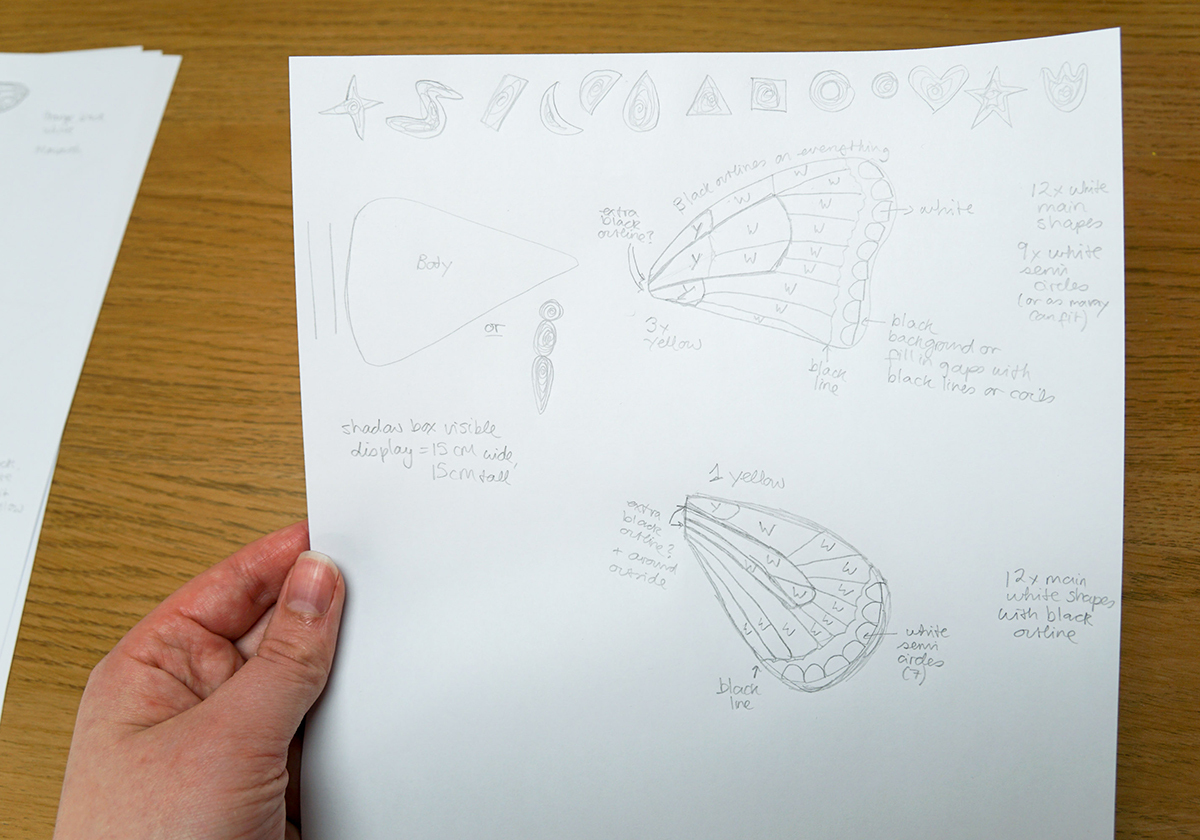 Black outlines on everything
extra
black
outline?
W
W
W
W
W
W
W
W
W
Y
Y
Y
white
12x white
main
shapes
9x white
semi
circles
(or as many
can fit)
Body
or
3x
yellow
black
line
black
background or
fill in gaps with
black lines or coils
shadow box visible
display = 15cm wide,
15cm tall
1 yellow
extra
black
outline?
+ around
outside
Y
W
W
W
W
W
W
W
W
W
W
W
W
12x main
white shapes
with black
outline
white
semi
circles
(7)
black
line